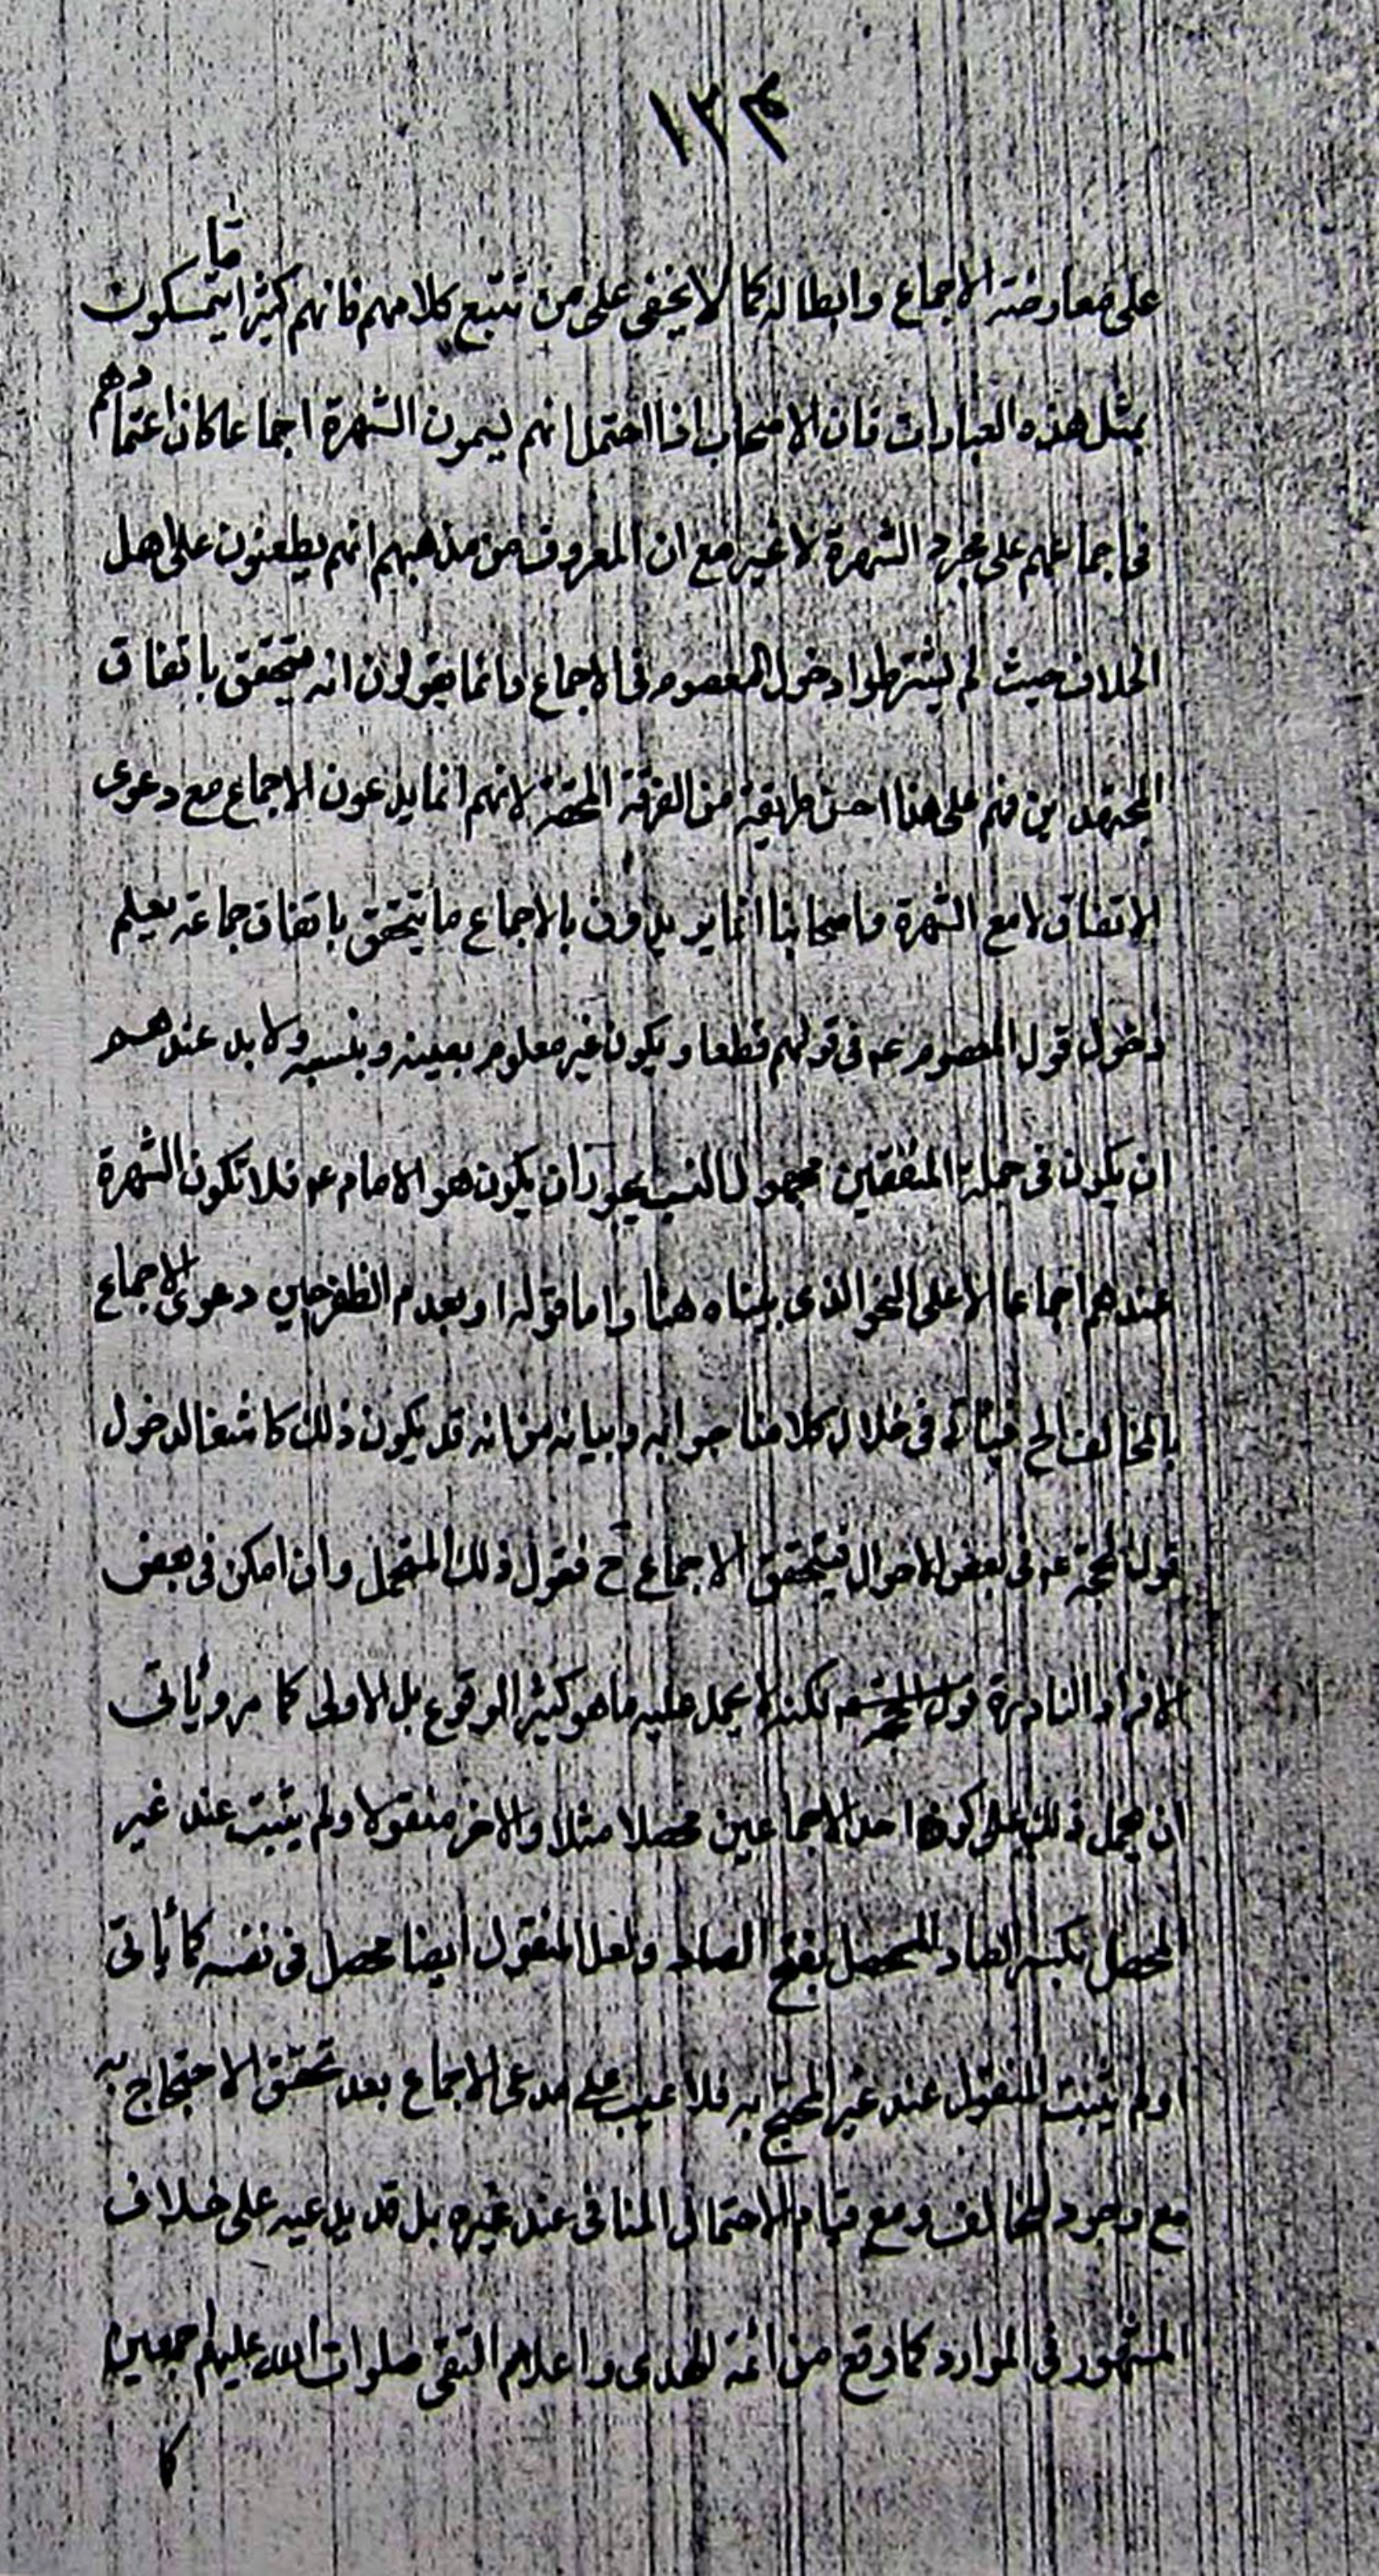 ١٢٤
على معارضة الاجماع وابطاله كما لا يخفى على من تتبع كلامهم فانهم كثيرا ما يتمسكون
بمثل هذه العبارات فان الاصحاب اذا احتمل انهم يسمون الشهرة اجماعا كان اعتمادهم
فى اجماعهم على مجرد الشهرة لا غير مع ان المعروف من مذهبهم انهم يطعنون على اهل
الخلاف حيث لم يشترطوا دخول المعصوم فى الاجماع وانما يقولون انه يتحقق باتفاق
المجتهدين فهم على هذا احسن طريقة من الفرقة المحقة لانهم انما يدعون الاجماع مع دعوى
الاتفاق لا مع الشهرة واصحابنا انما يريدون بالاجماع ما يتحقق باتفاق جماعة يعلم
دخول قول المعصوم عه فى قولهم قطعا ويكون غير معلوم بعينه وبنسبه ولا بد عندهم
ان يكون فى جملة المتفقين مجهول النسب يجوز ان يكون هو الامام عه فلا تكون الشهرة
عندهم اجماعا الا على النحو الذى بيناه هنا واما قوله او بعدم الظفر حين دعوى الاجماع
بالمخالف الخ فيأتى فى خلال كلامنا جوابه وبيانه من انه قد يكون ذلك كاشفا لدخول
قول الحجة عه فى بعض الاحوال فيتحقق الاجماع ح فقول ذلك المتحمل وان امكن فى بعض
الافراد النادرة لكنه لا يحمل عليه ما هو كثير الوقوع بل الاولى كما مر ويأتى
ان يحمل ذلك على كون احد الاجماعين محصلا مثلا والاخر منقولا ولم يثبت عند غير
المحصل بكسر الصاد المحصل بفتح الصاد ولعل المنقول ايضا محصل فى نفسه كما يأتى
اولم يثبت المنقول عند غير المحتج به فلا عيب على مدعى الاجماع بعد تحقق الاحتجاج به
مع وجود المخالف ومع قيام الاحتمال المنافى عند غيره بل قد يدعيه على خلاف
المشهور فى الموارد كما وقع من ائمة الهدى واعلام التقى صلوات الله عليهم اجمعين
كا